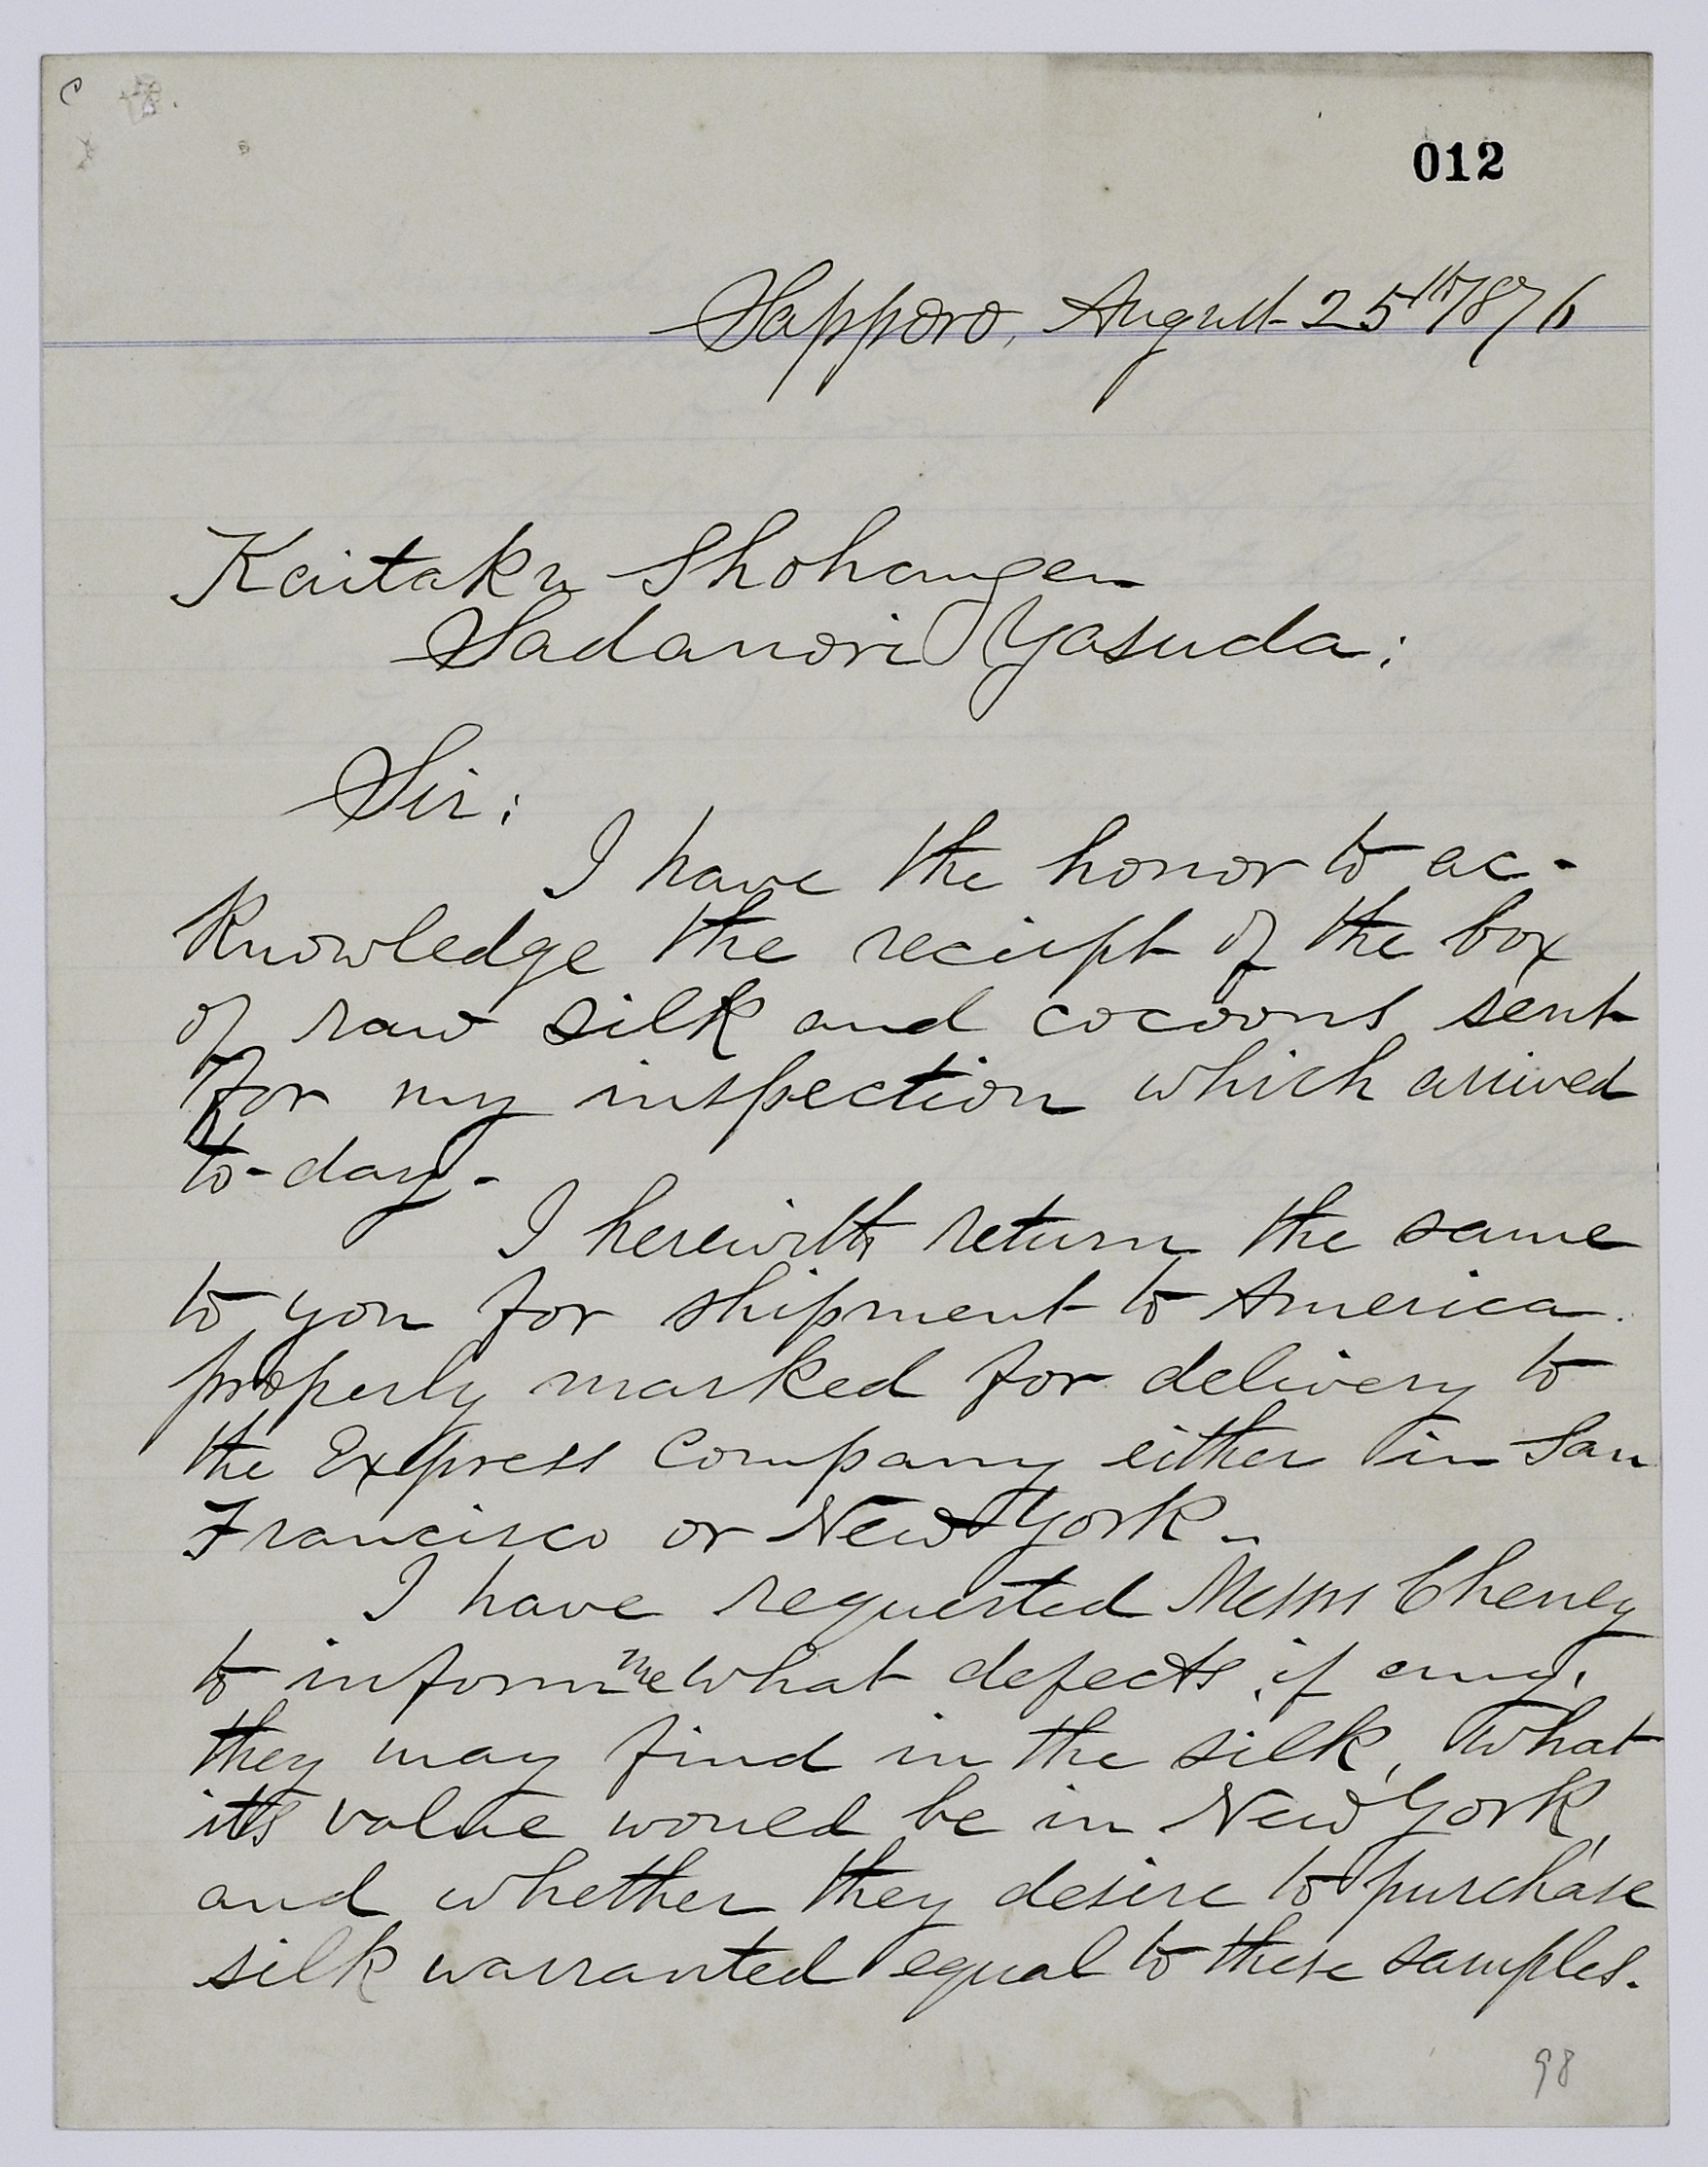 012
Sapporo, August 25th 1876
Kaitaku Shohangen
Sadanori Yasuda:
Sir:
I have the honor to ac-
knowledge the reciept of the box
of raw silk and cocoons sent
for my inspection which arrived
to-day.-
I herewith return the same
to you for shipment to America.
properly marked for delivery to
the Express Company either in San
Francisco or New York.-
I have requested Messrs Cheney
to inform me what defects, if any,
they may find in the silk, what
its value would be in New York,
and whether they desire to purchase
silk warranted equal to these samples.
98